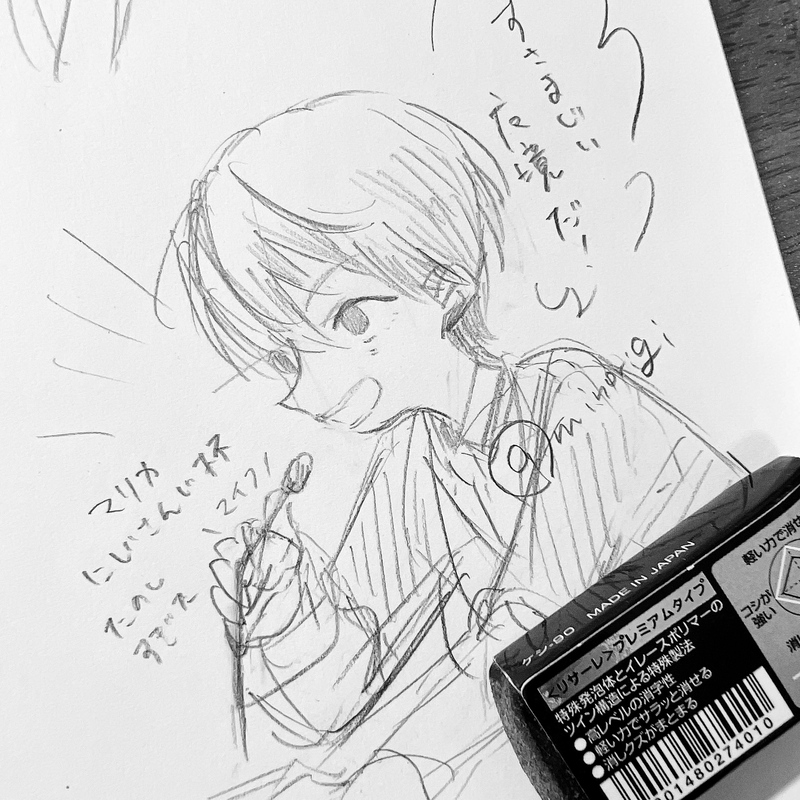 すさまじい
応境だ!
マリカ
にじさんじ杯
\マイフ/
たのし
すぎバス
@minorigi
ケシ-90 MADE IN JAPAN
<リサーレ>プレミアムタイプ
特殊発泡体とイレースポリマーの
ツイン構造による特殊製法
●高レベルの消字性
●軽い力でサラッと消せる
●消しクズがまとまる
軽い力で消せ
コシが
強い
消
01480274010